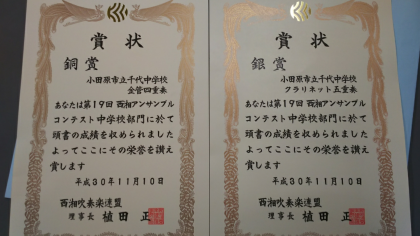 賞状
銅賞
小田原市立千代中学校
金管四重奏
あなたは第19回 西相アンサンブル
コンテスト中学校部門に於て
頭書の成績を収められました
よってここにその栄誉を讃え
賞します
平成30年11月10日
西湘吹奏楽連盟
理事長 植田 正
賞状
銀賞
小田原市立千代中学校
クラリネット五重奏
あなたは第19回 西相アンサンブル
コンテスト中学校部門に於て
頭書の成績を収められました
よってここにその栄誉を讃え
賞します
平成30年11月10日
西湘吹奏楽連盟
理事長 植田 正